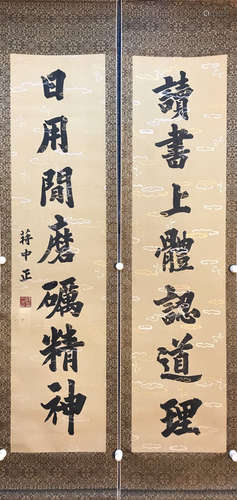 讀書上體認道理
日用間磨礪精神
蔣中正